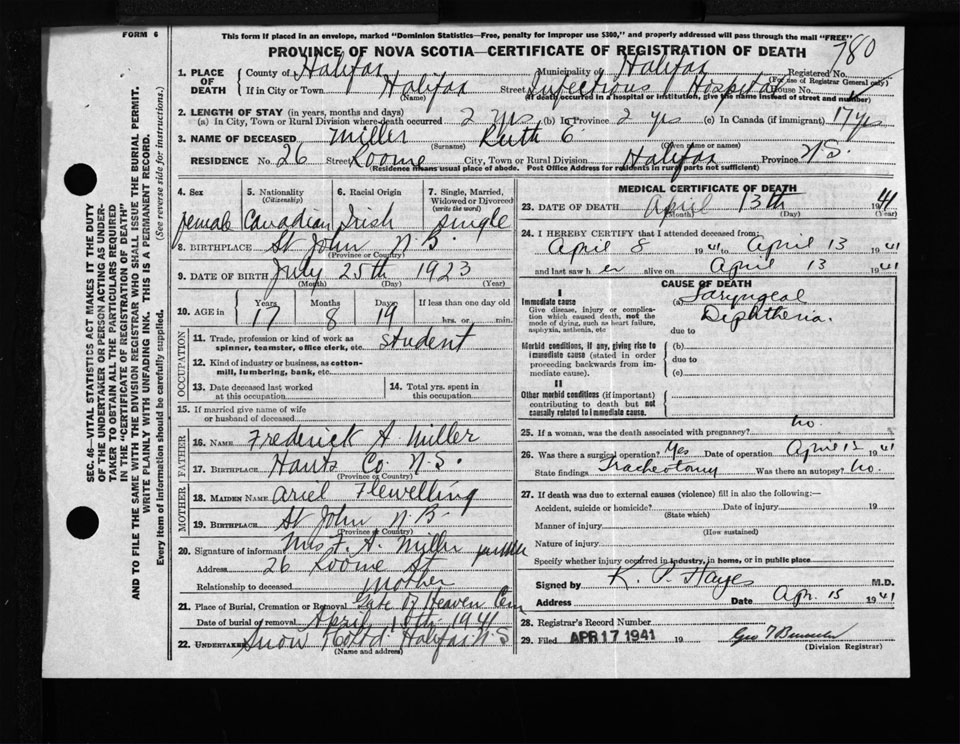 FORM 6
This form if placed in an envelope, marked "Dominion Statistics—Free, penalty for improper use $300," and properly addressed will pass through the mail "FREE"
PROVINCE OF NOVA SCOTIA—CERTIFICATE OF REGISTRATION OF DEATH
780
1. PLACE OF DEATH County of Halifax Municipality of Halifax Registered No.
(For use of Registrar General only)
If in City or Town Halifax Street Infectious Hospital House No.
(Name) (If death occurred in a hospital or institution, give the name instead of street and number)
2. LENGTH OF STAY (in years, months and days)
(a) In City, Town or Rural Division where death occurred 2 yrs (b) In Province 2 yrs (c) In Canada (if immigrant) 17 yrs
3. NAME OF DECEASED Miller Ruth C.
(Surname) (Given name or names)
RESIDENCE No. 26 Street Roome City, Town or Rural Division Halifax Province N.S.
(Residence means usual place of abode. Post Office Address for residents in rural parts not sufficient)
4. Sex 5. Nationality (Citizenship) 6. Racial Origin 7. Single, Married, Widowed or Divorced (write the word)
female Canadian Irish single
8. BIRTHPLACE St John N.B.
(Province or Country)
9. DATE OF BIRTH July 25th 1923
(Month) (Day) (Year)
10. AGE in Years Months Days If less than one day old
17 8 19 hrs. or min.
OCCUPATION
11. Trade, profession or kind of work as spinner, teamster, office clerk, etc. student
12. Kind of industry or business, as cotton-mill, lumbering, bank, etc.
13. Date deceased last worked at this occupation
14. Total yrs. spent in this occupation
15. If married give name of wife or husband of deceased
FATHER
16. NAME Frederick A. Miller
17. BIRTHPLACE Hants Co. N.S.
(Province or Country)
MOTHER
18. MAIDEN NAME Ariel Flewelling
19. BIRTHPLACE St John N.B.
(Province or Country)
20. Signature of informant Mrs F. A. Miller
Address 26 Roome St
Relationship to deceased Mother
21. Place of Burial, Cremation or Removal Gate Of Heaven Cem
Date of burial or removal April 1941
22. UNDERTAKER Snow & Co Ltd Halifax N.S
(Name and address)
MEDICAL CERTIFICATE OF DEATH
23. DATE OF DEATH April 13th 1941
(Month) (Day) (Year)
24. I HEREBY CERTIFY that I attended deceased from:
April 8 1941 to April 13 1941
and last saw her alive on April 13 1941
CAUSE OF DEATH
I
Immediate cause (a) Laryngeal Diphtheria.
Give disease, injury or complication which caused death, not the mode of dying, such as heart failure, asphyxia, asthenia, etc
due to
Morbid conditions, if any, giving rise to immediate cause (stated in order proceeding backwards from immediate cause).
(b)
due to
(c)
II
Other morbid conditions (if important) contributing to death but not causally related to immediate cause.
25. If a woman, was the death associated with pregnancy? no.
26. Was there a surgical operation? Yes Date of operation April 1941
State findings Tracheotomy Was there an autopsy? No.
27. If death was due to external causes (violence) fill in also the following:—
Accident, suicide or homicide? Date of injury 19
(State which)
Manner of injury
(How sustained)
Nature of injury
Specify whether injury occurred in industry, in home, or in public place
Signed by K. P. Hayes M.D.
Address Date Apr. 15 1941
28. Registrar's Record Number
29. Filed APR 17 1941 19
(Division Registrar)
SEC. 46—VITAL STATISTICS ACT MAKES IT THE DUTY
OF THE UNDERTAKER OR PERSON ACTING AS UNDER-
TAKER TO OBTAIN ALL THE PARTICULARS REQUIRED
IN THE "CERTIFICATE OF REGISTRATION OF DEATH"
AND TO FILE THE SAME WITH THE DIVISION REGISTRAR WHO SHALL ISSUE THE BURIAL PERMIT.
WRITE PLAINLY WITH UNFADING INK. THIS IS A PERMANENT RECORD.
Every item of Information should be carefully supplied. (See reverse side for instructions.)